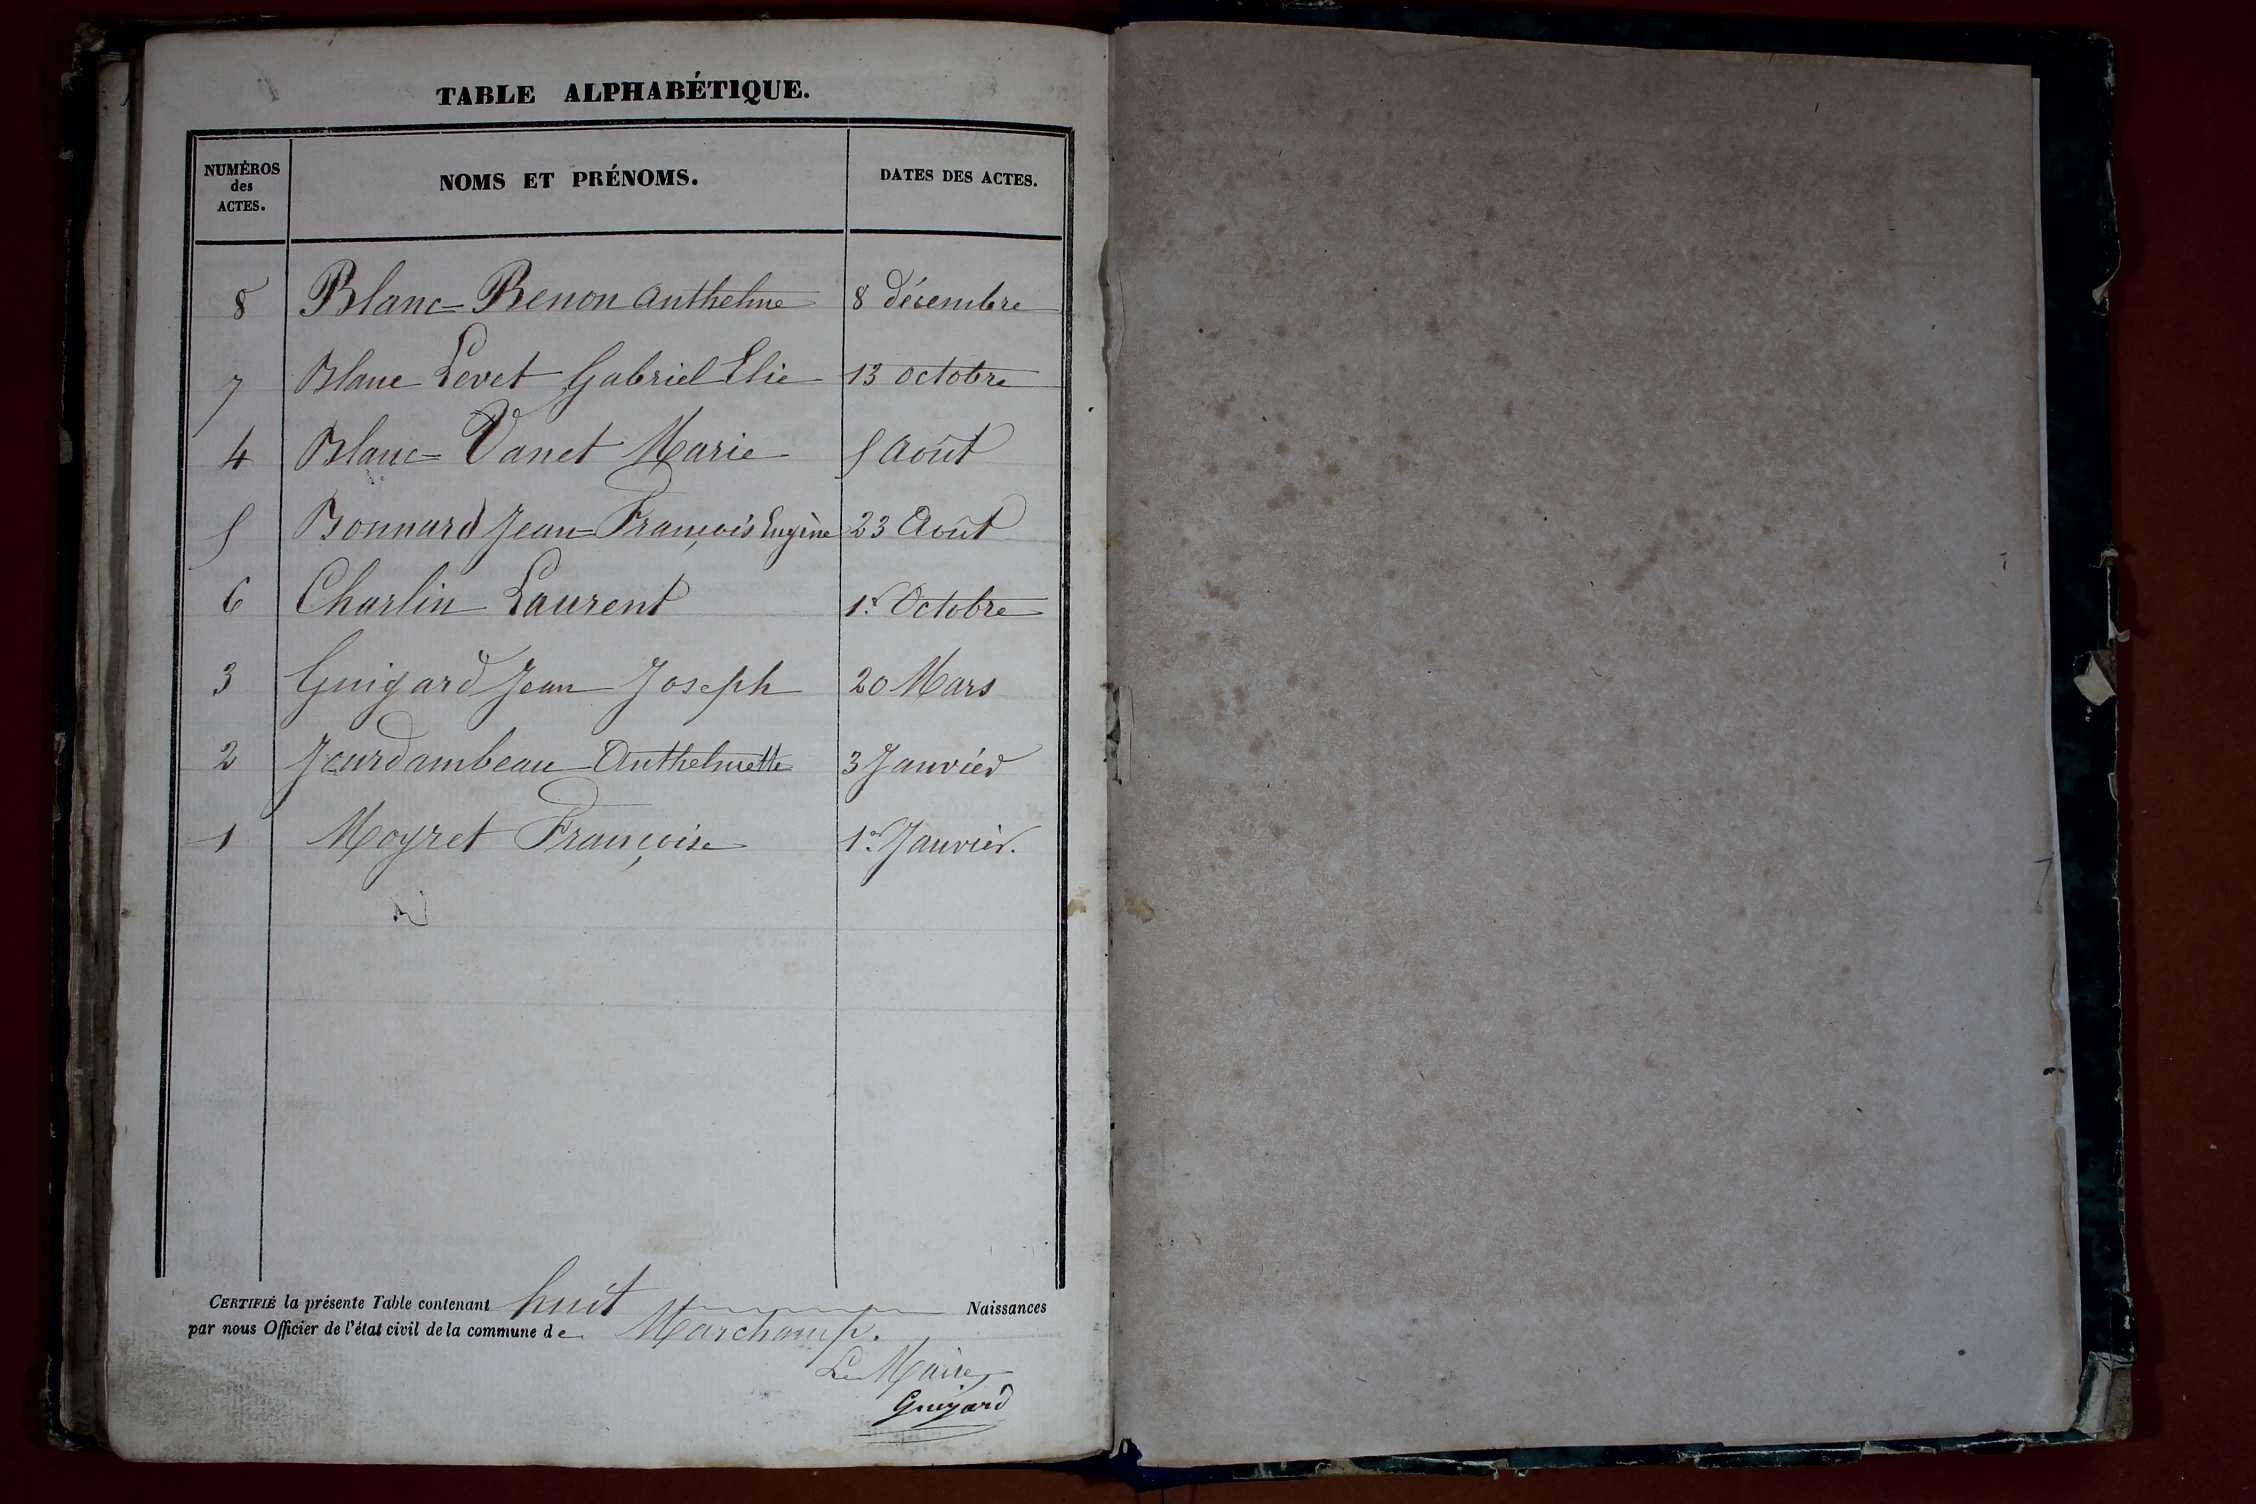 TABLE ALPHABÉTIQUE.
NUMÉROS des ACTES. NOMS ET PRÉNOMS. DATES DES ACTES.
8 Blanc-Benon Anthelme 8 décembre
7 Blanc Levet Gabriel Elie 13 octobre
4 Blanc-Vanet Marie 5 Août
5 Bonnard Jean-François Eugène 23 Août
6 Charlin Laurent 1.r Octobre
3 Guigard Jean Joseph 20 Mars
2 Jourdambeau Anthelmette 3 Janvier
1 Moyret Françoise 1.er Janvier.
CERTIFIÉ la présente Table contenant huit Naissances
par nous Officier de l'état civil de la commune de Marchamp.
Le Maire
Guigard